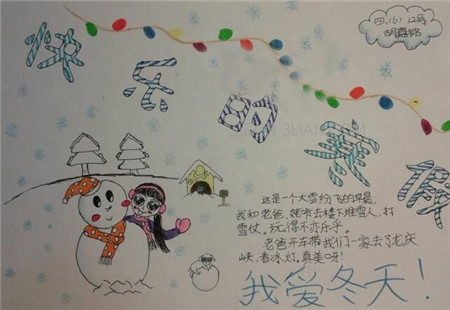 快乐的寒假
四.(6) 12号
这是一个大雪纷飞的早晨,
我和老爸、姥爷去楼下堆雪人,打
雪仗,玩得不亦乐乎。
老爸开车带我们一家去了龙庆
峡,看冰灯。真美呀!
我爱冬天!